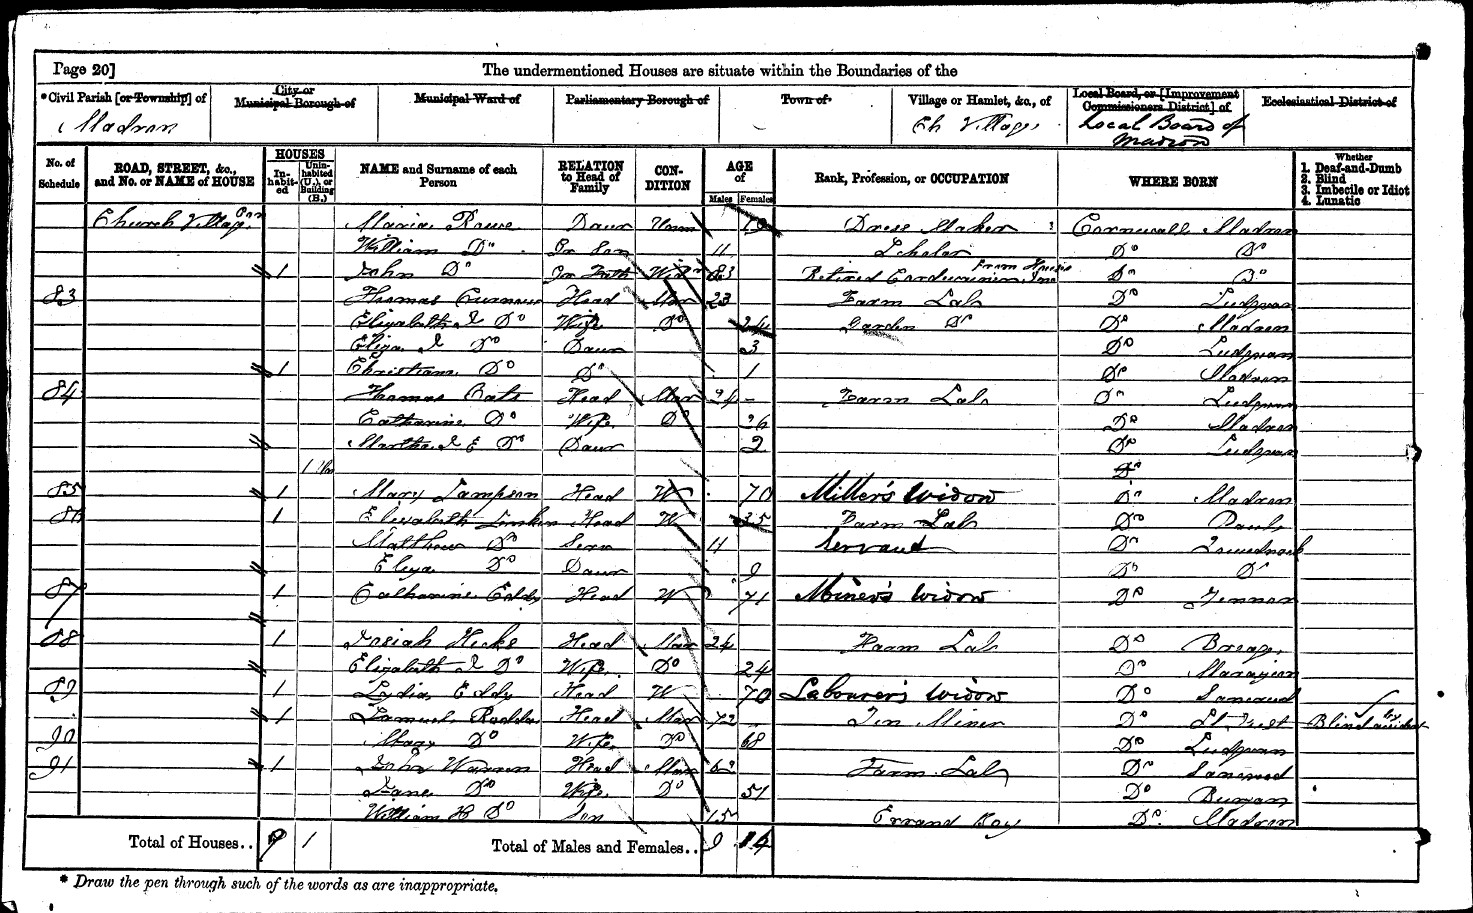 Page 20]
The undermentioned Houses are situate within the Boundaries of the
*Civil Parish [or Township] of
Madron
City or
Municipal Borough of
Municipal Ward of
Parliamentary Borough of
Town of
Village or Hamlet, &c., of
Ch Village
Local Board, or [Improvement
Commissioners District] of
Local Board of
Madron
Ecclesiastical District of
No. of
Schedule
ROAD, STREET, &c.,
and No. or NAME of HOUSE
HOUSES
In-
habit-
ed
Unin-
habited
(U.), or
Building
(B.)
NAME and Surname of each
Person
RELATION
to Head of
Family
CON-
DITION
AGE
of
Males Females
Rank, Profession, or OCCUPATION
WHERE BORN
Whether
1. Deaf-and-Dumb
2. Blind
3. Imbecile or Idiot
4. Lunatic
Church Village Maria Rowe Daur Unm 19 Dress Maker Cornwall Madron
William Do Gr Son 11 Scholar Do Do
1 John Do Gr Fath Widr 83 Retired Cordwainer Do Do
83 Thomas Curnow Head Mar 23 Farm Lab Do Ludgvan
Elizabeth J Do Wife Do 24 Garden Do Do Madron
Eliza J Do Daur 3 Do Ludgvan
1 Christiana Do Do 1 Do Madron
84 Thomas Bats Head Mar 24 Farm Lab Do Ludgvan
Catharine Do Wife Do 26 Do Madron
Martha J E Do Daur 2 Do Ludgvan
1 Do
85 1 Mary Sampson Head W 70 Miller's Widow Do Madron
86 1 Elizabeth Head W 35 Farm Lab Do Paul
Matthew Do Son 11 Servant Do Towednack
Eliza Do Daur 9 Do Do
87 1 Catharine Eddy Head W 71 Miner's Widow Do Zennor
88 1 Josiah Hicks Head Mar 24 Farm Lab Do Breage
Elizabeth J Do Wife Do 24 Do Marazion
89 1 Lydia Eddy Head W 70 Labourer's Widow Do Sancreed
90 1 Samuel Rodda Head Mar 72 Tin Miner Do St Just Blind by accident
Mary Do Wife Do 68 Do Ludgvan
91 1 John Warren Head Mar 62 Farm Lab Do Sancreed
Jane Do Wife Do 51 Do Buryan
William H Do Son 15 Errand Boy Do Madron
Total of Houses.. 9 1
Total of Males and Females.. 9 14
* Draw the pen through such of the words as are inappropriate.